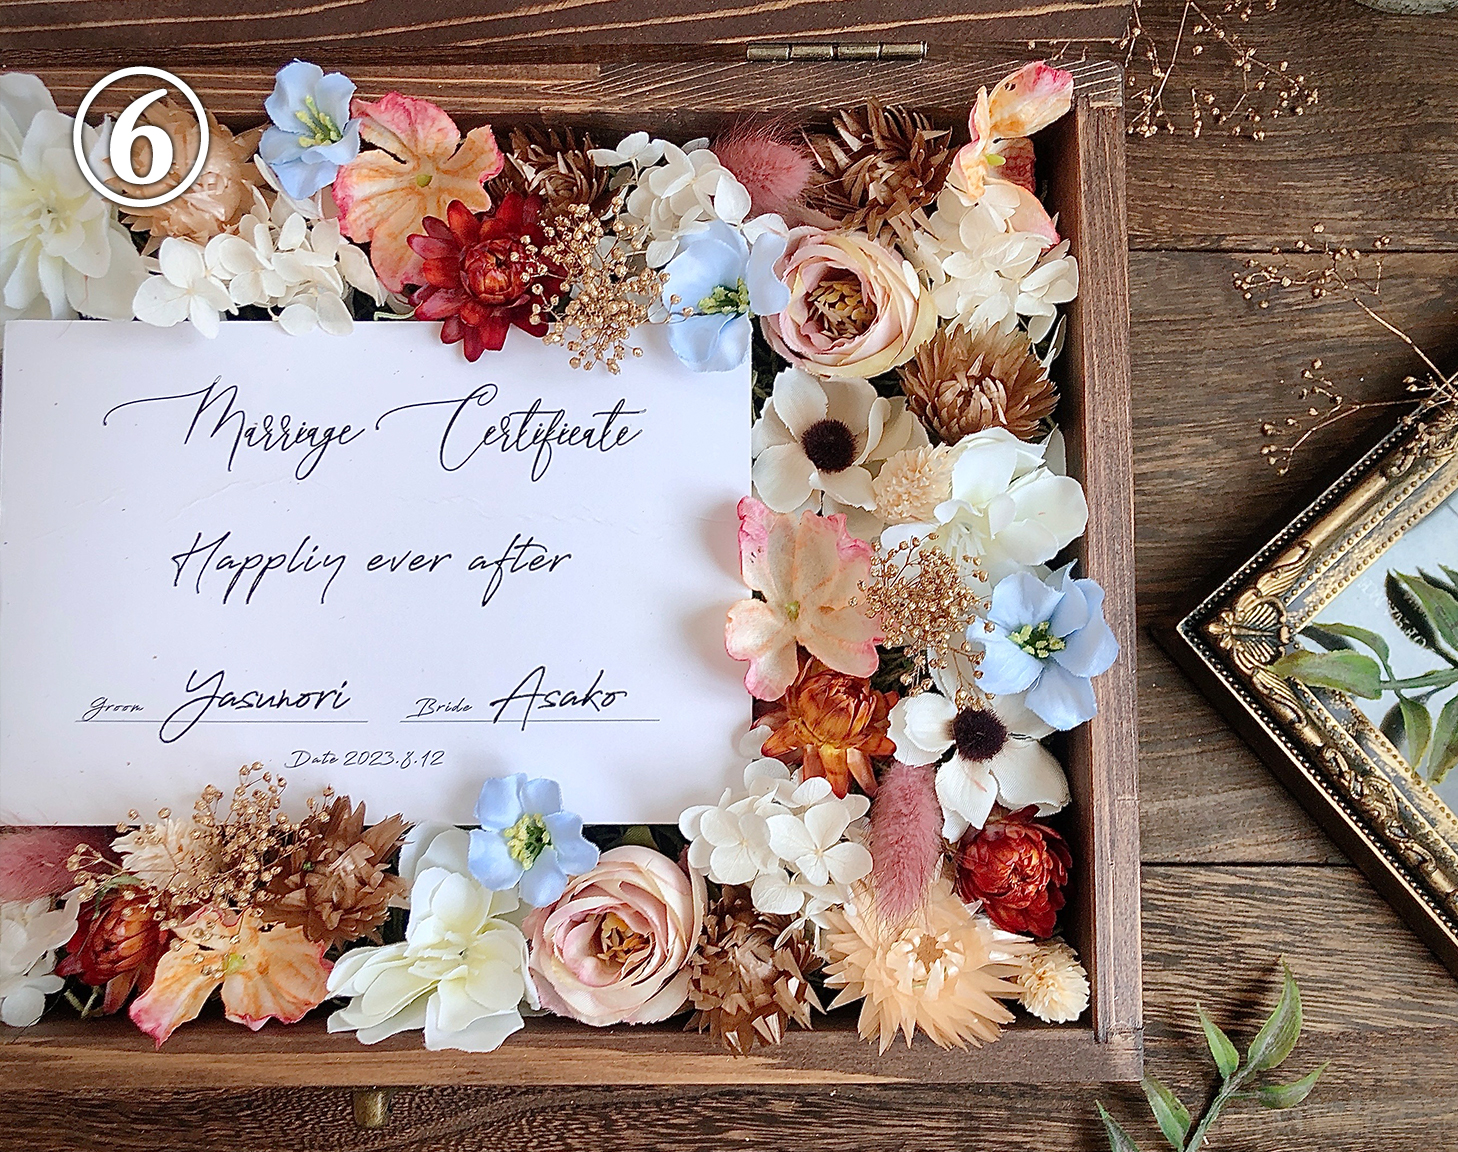 ⑥
Marriage Certificate
Happliy ever after
Groom Yasunori Bride Asako
Date 2023.8.12